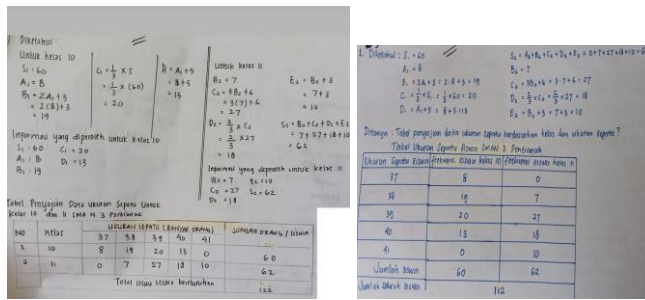 Diketahui :
Untuk kelas 10
S₁ : 60
A₁ = 8
B₁ = 2A₁ + 3
= 2(8) + 3
= 19
C₁ = 1/3 × S
= 1/3 × (60)
= 20
D = A₁ + 5
= 8 + 5
= 13
Informasi yang diperoleh untuk kelas 10
S₁ : 60 C₁ = 20
A₁ : 8 D₁ = 13
B₁ : 19
Untuk kelas 11
B₂ = 7
C₂ = 3B₂ + 6
= 3(7) + 6
= 27
D₂ = 2/3 × C₂
= 2/3 × 27
= 18
E₂ = B₂ + 3
= 7 + 3
= 10
S₂ = B₂ + C₂ + D₂ + E₂
= 7 + 27 + 18 + 10
= 62
Informasi yang diperoleh untuk kelas 11
B₂ = 7 E₂ = 10
C₂ = 27 S₂ = 62
D₂ = 18
Tabel Penyajian Data Ukuran Sepatu Untuk
kelas 10 dan 11 SMA N 3 Pontianak
NO Kelas UKURAN SEPATU (BANYAK ORANG) JUMLAH ORANG / SISWA
37 38 39 40 41
1 10 8 19 20 13 0 60
2 11 0 7 27 18 10 62
Total siswa secara keseluruhan 122
1. Diketahui : S₁ = 60
A₁ = 8
B₁ = 2A + 3 = 2·8 + 3 = 19
C₁ = 1/3 × S₁ = 1/3 × 60 = 20
D₁ = A₁ + 5 = 8 + 5 = 13
S₂ = A₂ + B₂ + C₂ + D₂ + E₂ = 0 + 7 + 27 + 18 + 10 = 6
B₂ = 7
C₂ = 3B₂ + 6 = 3·7 + 6 = 27
D₂ = 2/3 × C₂ = 2/3 × 27 = 18
E₂ = B₂ + 3 = 7 + 3 = 10
Ditanya : Tabel penyajian data ukuran sepatu berdasarkan kelas dan ukuran sepatu ?
Tabel Ukuran Sepatu Siswa SMAN 3 Pontianak
Ukuran Sepatu Siswa frekuensi siswa kelas 10 frekuensi siswa kelas 11
37 8 0
38 19 7
39 20 27
40 13 18
41 0 10
Jumlah siswa 60 62
Jumlah seluruh siswa 112